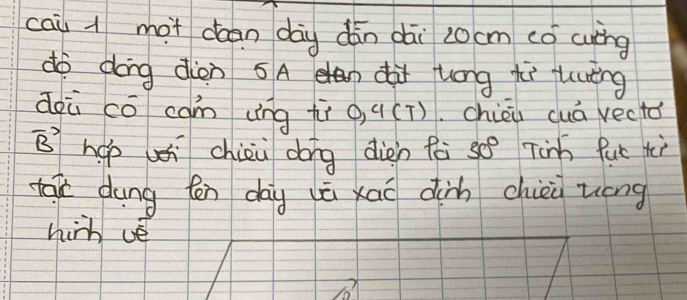 câu 1 một đoạn dây dẫn dài 20cm có cường
độ dòng điện 5A đặt trong từ trường
đều có cảm ứng từ 0,4(T). chiều của vectơ
B hợp với chiều dòng điện là 30° Tính lực từ
tác dụng lên dây và xác định chiều trong
hình vẽ